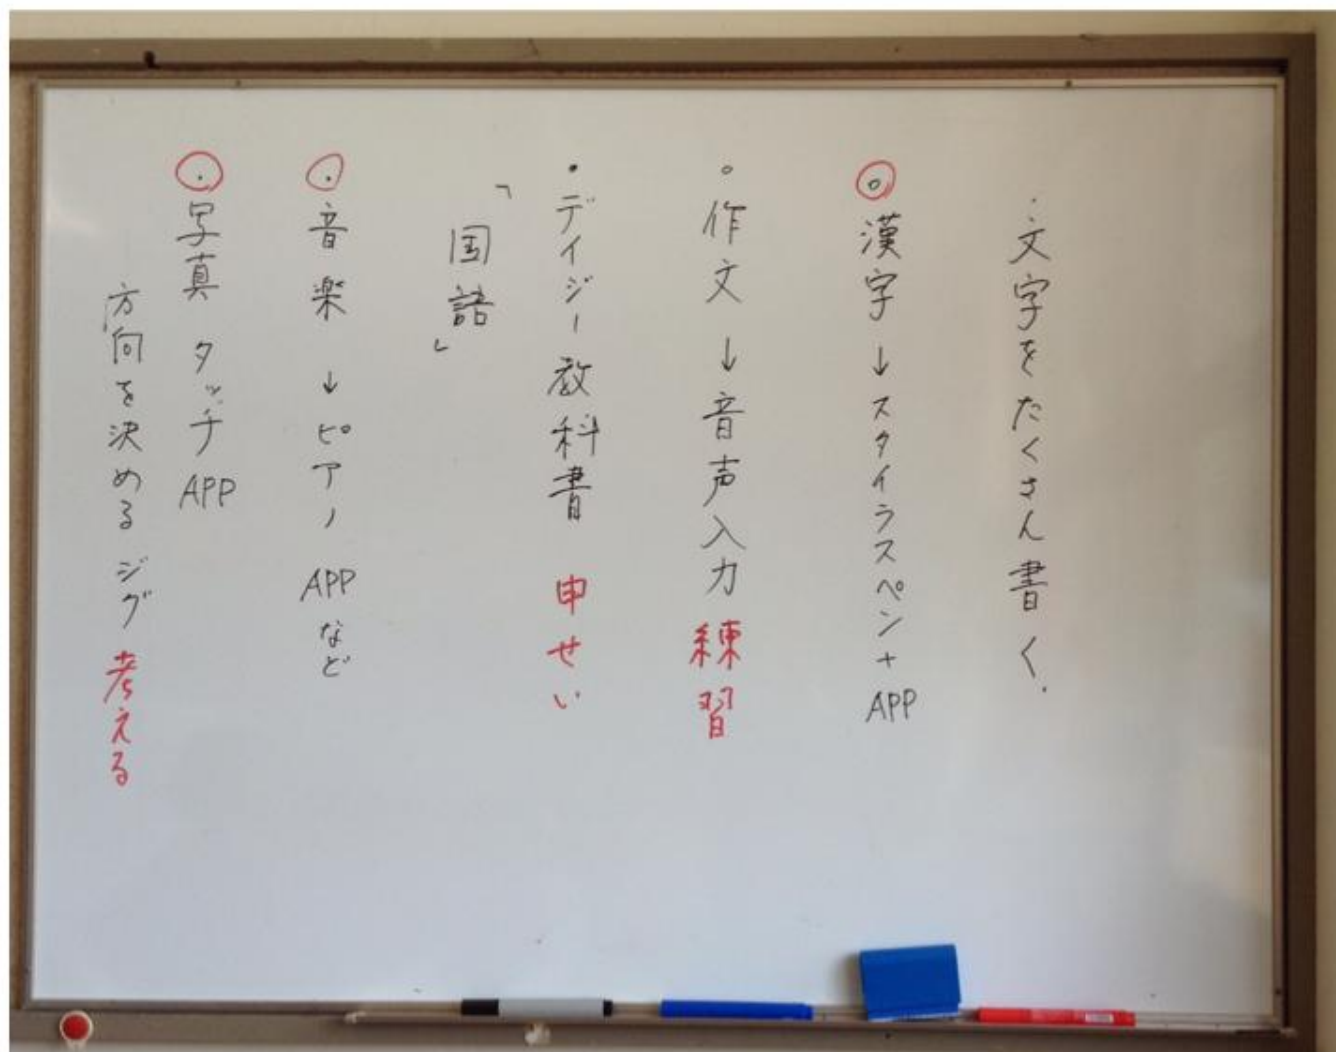 ・文字をたくさん書く.
。漢字→スタイラスペン+APP
。作文→音声入力練習
・デイジー教科書 申せい
「国語」
・音楽→ピアノAPPなど
・写真 タッチAPP
方向を決めるジグ考える